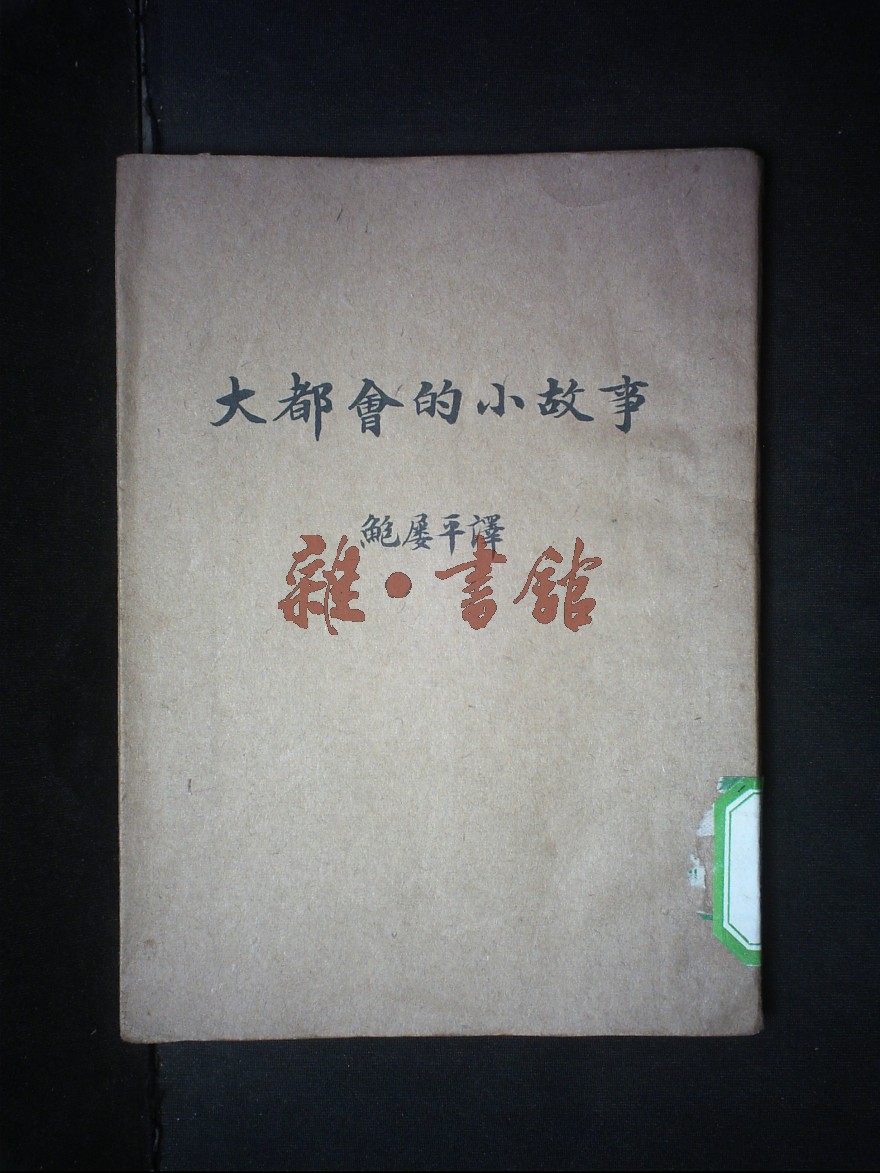 大都會的小故事
鮑屡平譯
雜·書館